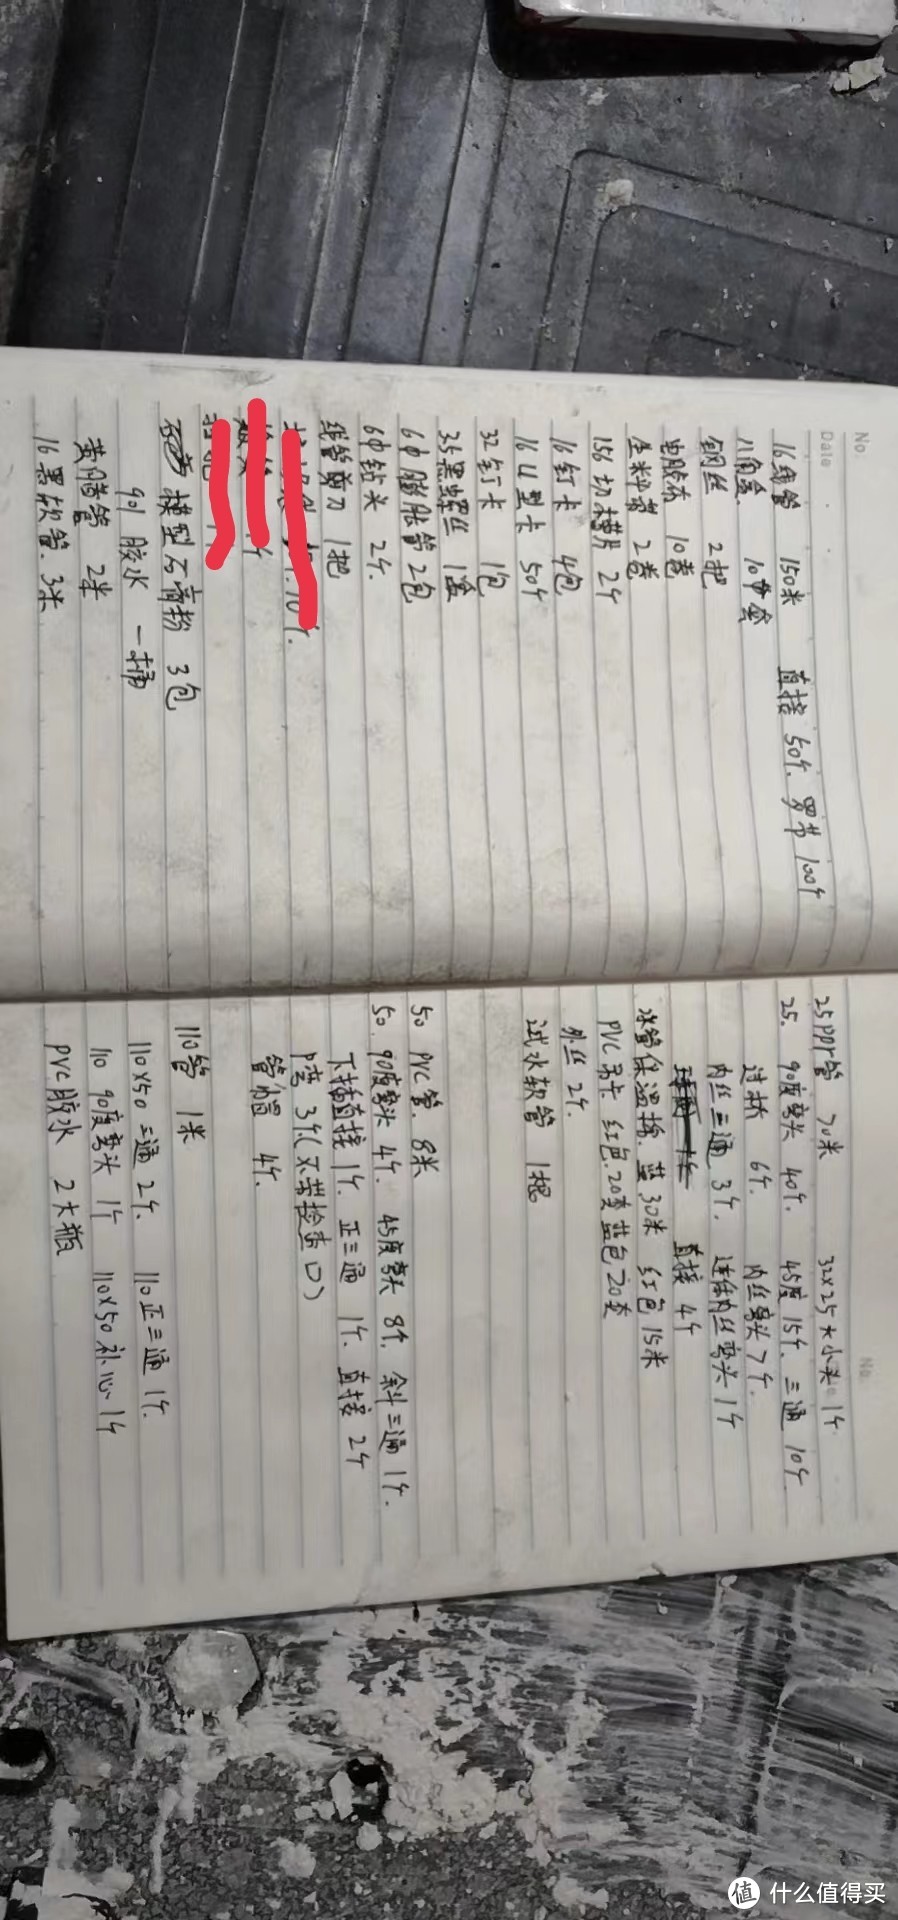 No.
Date
16线管 150米 直接 50个. 罗节 100个
八角盒. 10个盒
钢丝 2把
电胶布 10卷
生料带 2卷
156 切槽片 2个
16 钉卡 4包
16 U型卡 50个
32 钉卡 1包
35黑螺丝 1盒
6中膨胀管 2包
6中钻头 2个.
线管剪刀 1把
10个.
模型石膏粉 3包
901 胶水 一桶
黄腊管 2米
16 黑软管. 3米
No.
25ppr管 70米 32x25大小头 1个
25. 90度弯头 40个. 45度 15个. 三通 10个
过桥 6个. 内丝弯头 7个.
内丝三通 3个. 连体内丝弯头 1个
直接 4个
水管保温棉. 蓝 30米 红色 15米
PVC吊卡 红色.20套 蓝色20套
外丝 2个.
试水软管 1根
50 PVC管. 8米
50. 90度弯头 4个. 45度弯头 8个. 斜三通 1个.
下插直接 1个. 正三通 1个. 直接 2个
3个(不带检查口)
管帽 4个.
110管 1米
110x50 三通 2个. 110正三通 1个.
110 90度弯头 1个 110x50补心 1个
PVC胶水 2大瓶
值 什么值得买